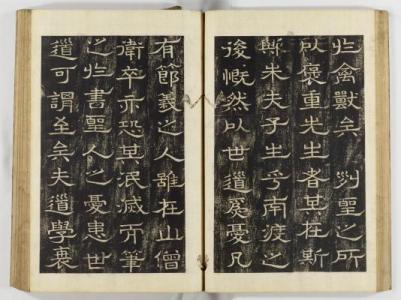 於禽獸矣 列聖之所
以褒重先生者其在斯
歟朱夫子生乎南渡之
後慨然以世道爲憂凡
有節義之人雖在山僧
衛卒亦恐其泯滅而筆
之於書聖人之憂患世
道可謂至矣夫道學衰